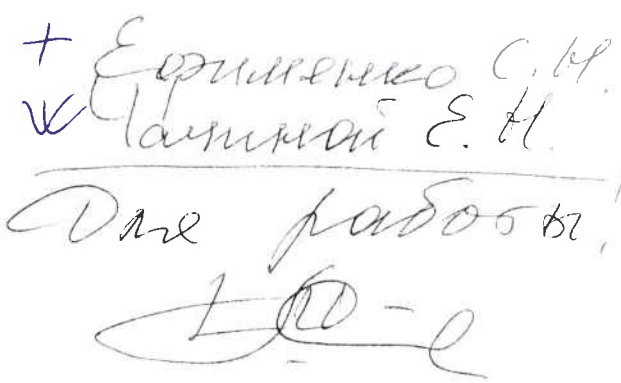 + Ефименко С.Н.
Чапиной Е.Н.
Для работы!